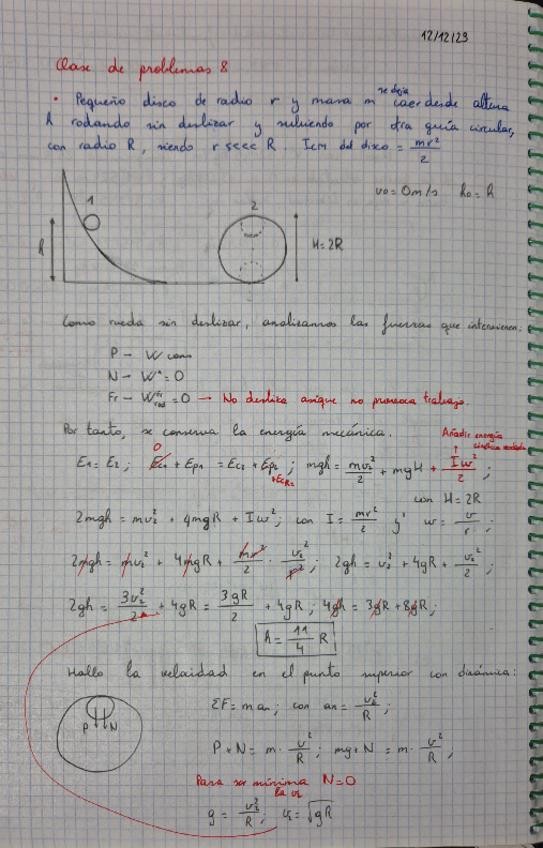 12/12/23
Clase de problemas 8
• Pequeño disco de radio r y masa m se deja caer desde altura
h rodando sin deslizar y subiendo por otra guía circular,
con radio R, siendo r <<<< R. Icm del disco = mr²/2
v₀ = 0m/s h₀ = h
1
2
h
H=2R
Como rueda sin deslizar, analizamos las fuerzas que intervienen:
P - W cons
N - Wᴺ = 0
Fr - W^Fr_rod = 0 → No desliza asique no provoca trabajo.
Por tanto, se conserva la energía mecánica.
Añadir energía
cinética
E₁ = E₂ ; Ec₁ + Ep₁ = Ec₂ + Ep₂ ; mgh = mv₂²/2 + mgH + Iω²/2 ;
0
+EcR₂
con H = 2R
2mgh = mv₂² + 4mgR + Iω² ; con I = mr²/2 y ω = v/r ;
2mgh = mv₂² + 4mgR + mr²/2 · v₂²/r² ; 2gh = v₂² + 4gR + v₂²/2 ;
2gh = 3v₂²/2 + 4gR = 3gR/2 + 4gR ; 4gh = 3gR + 8gR ;
h = 11/4 R
Hallo la velocidad en el punto superior con dinámica:
ΣF = m aₙ ; con an = v₂²/R ;
P N
P + N = m · v²/R ; mg + N = m · v²/R ;
Para ser mínima N=0
la v₂
g = v₂²/R ; v₂ = √gR